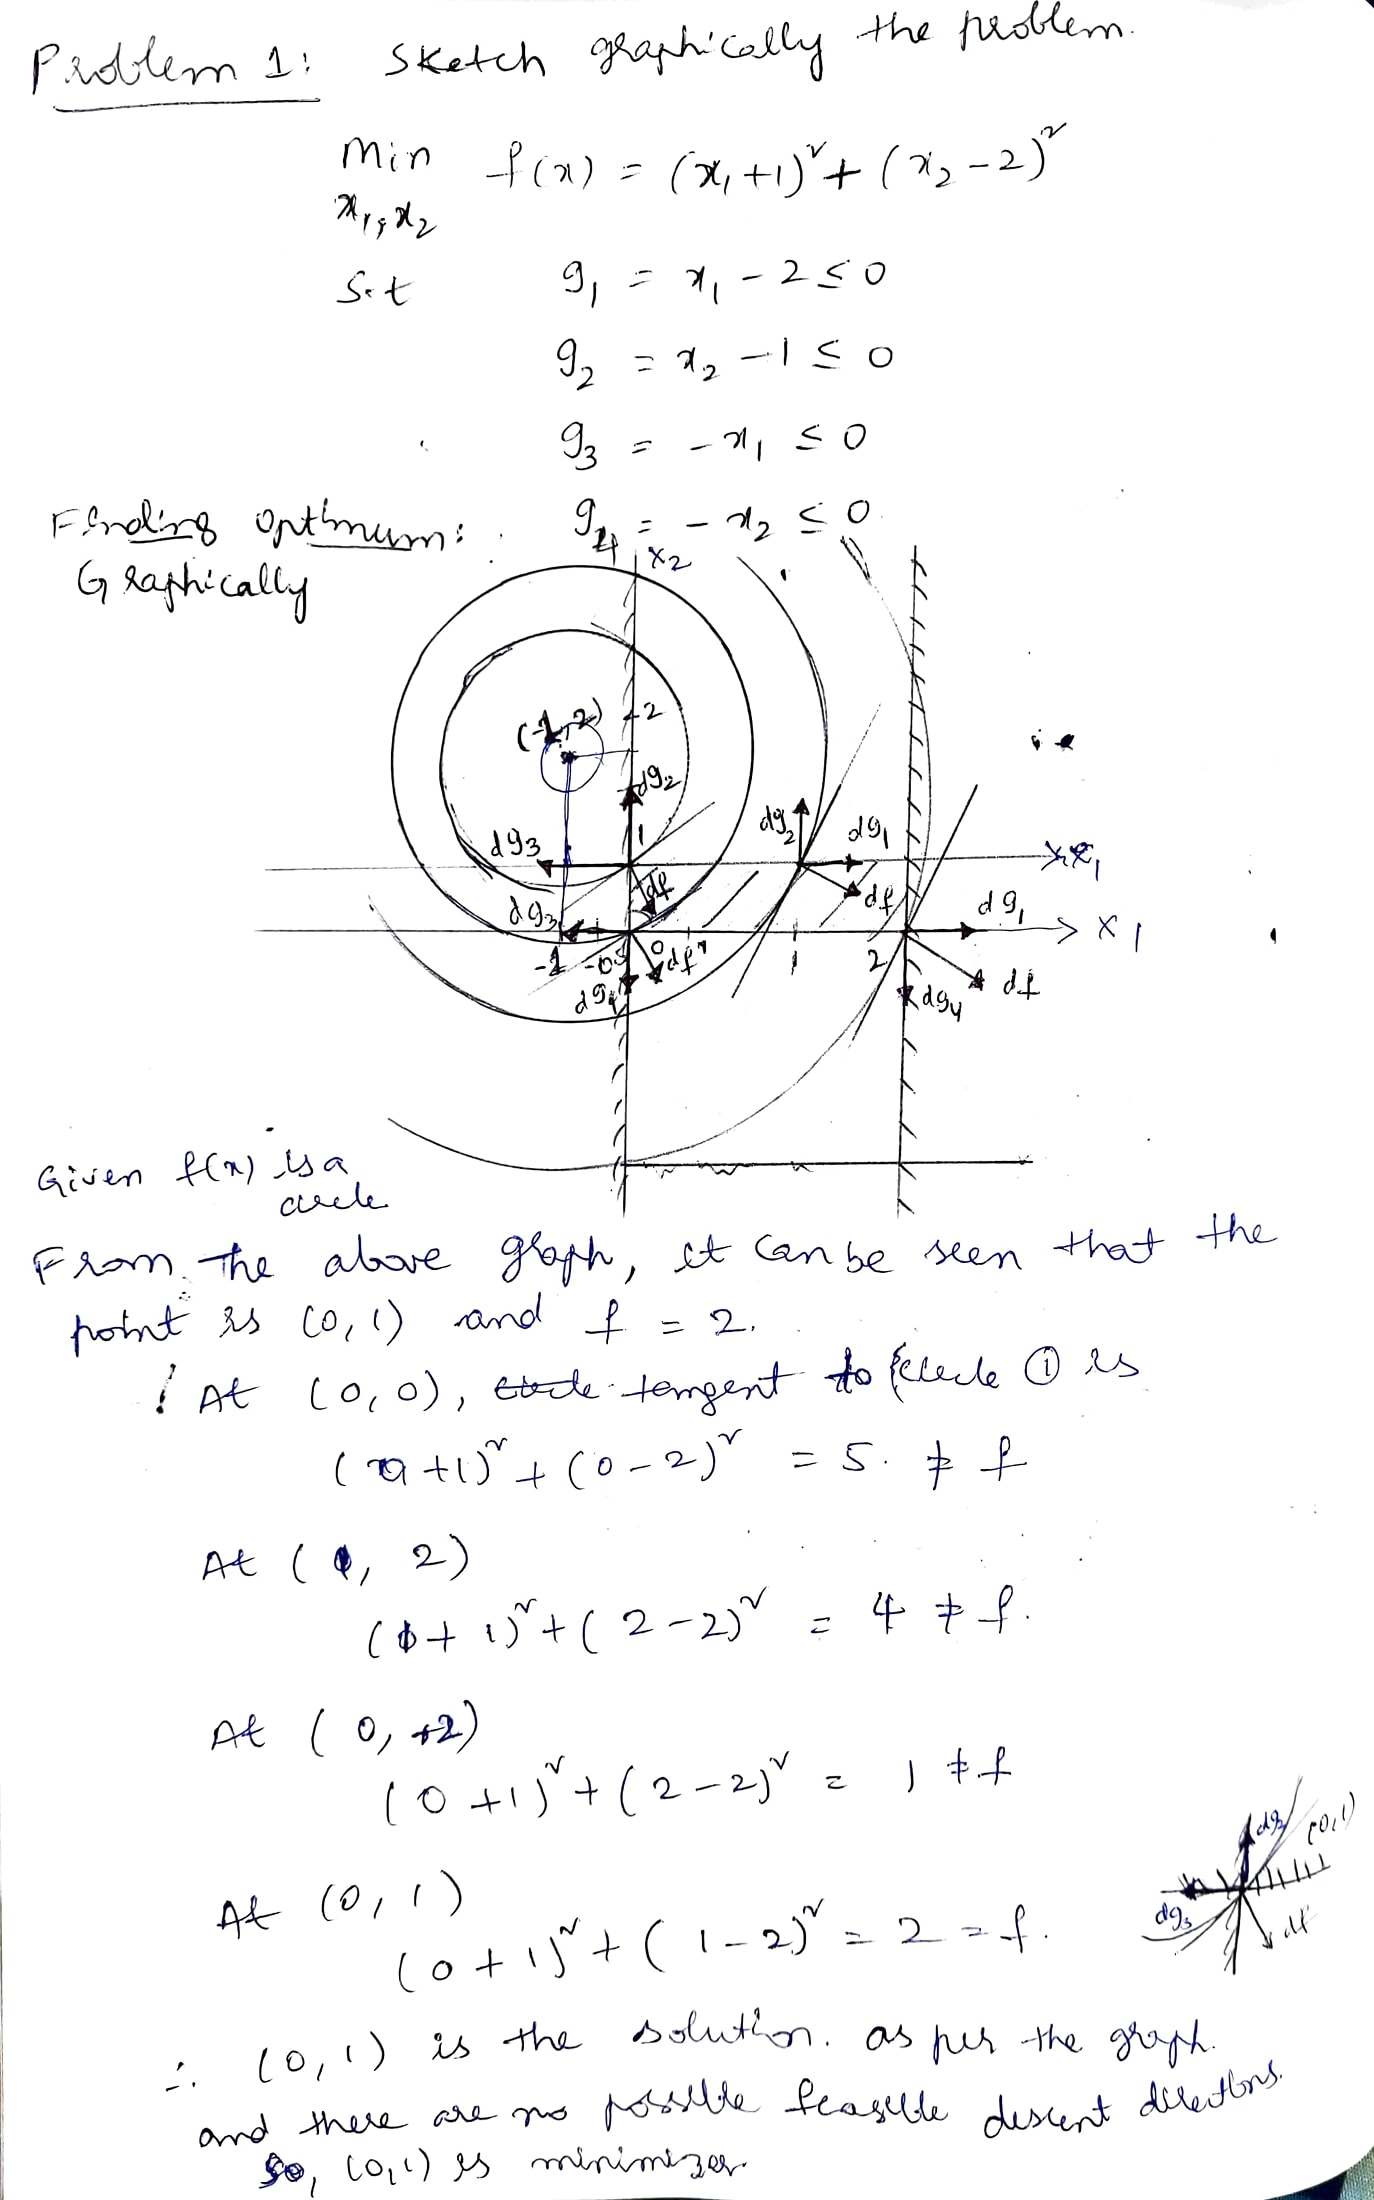 Problem 1: Sketch graphically the problem.
Min f(x) = (x₁+1)² + (x₂-2)²
x₁, x₂
S.t g₁ = x₁ - 2 ≤ 0
g₂ = x₂ - 1 ≤ 0
g₃ = - x₁ ≤ 0
Finding Optimum: g₄ = - x₂ ≤ 0
Graphically
x₂
(-1, 2) +2
dg₂
dg₃ 1 dg₂ dg₁ x₁
dg₃ df df dg₁ x₁
-1 -0.5 0 df 1 2 df
dg₄ dg₄
Given f(x) is a
circle
From the above graph, it can be seen that the
point is (0,1) and f = 2.
At (0,0), tangent to circle ① is
(0+1)² + (0-2)² = 5. ≠ f
At (1, 2)
(1+1)² + (2-2)² = 4 ≠ f.
At (0, +2)
(0+1)² + (2-2)² = 1 ≠ f
dg₂ (0,1)
dg₃ df
At (0,1)
(0+1)² + (1-2)² = 2 = f.
∴ (0,1) is the solution. as per the graph.
and there are no possible feasible descent directions.
So, (0,1) is minimizer.